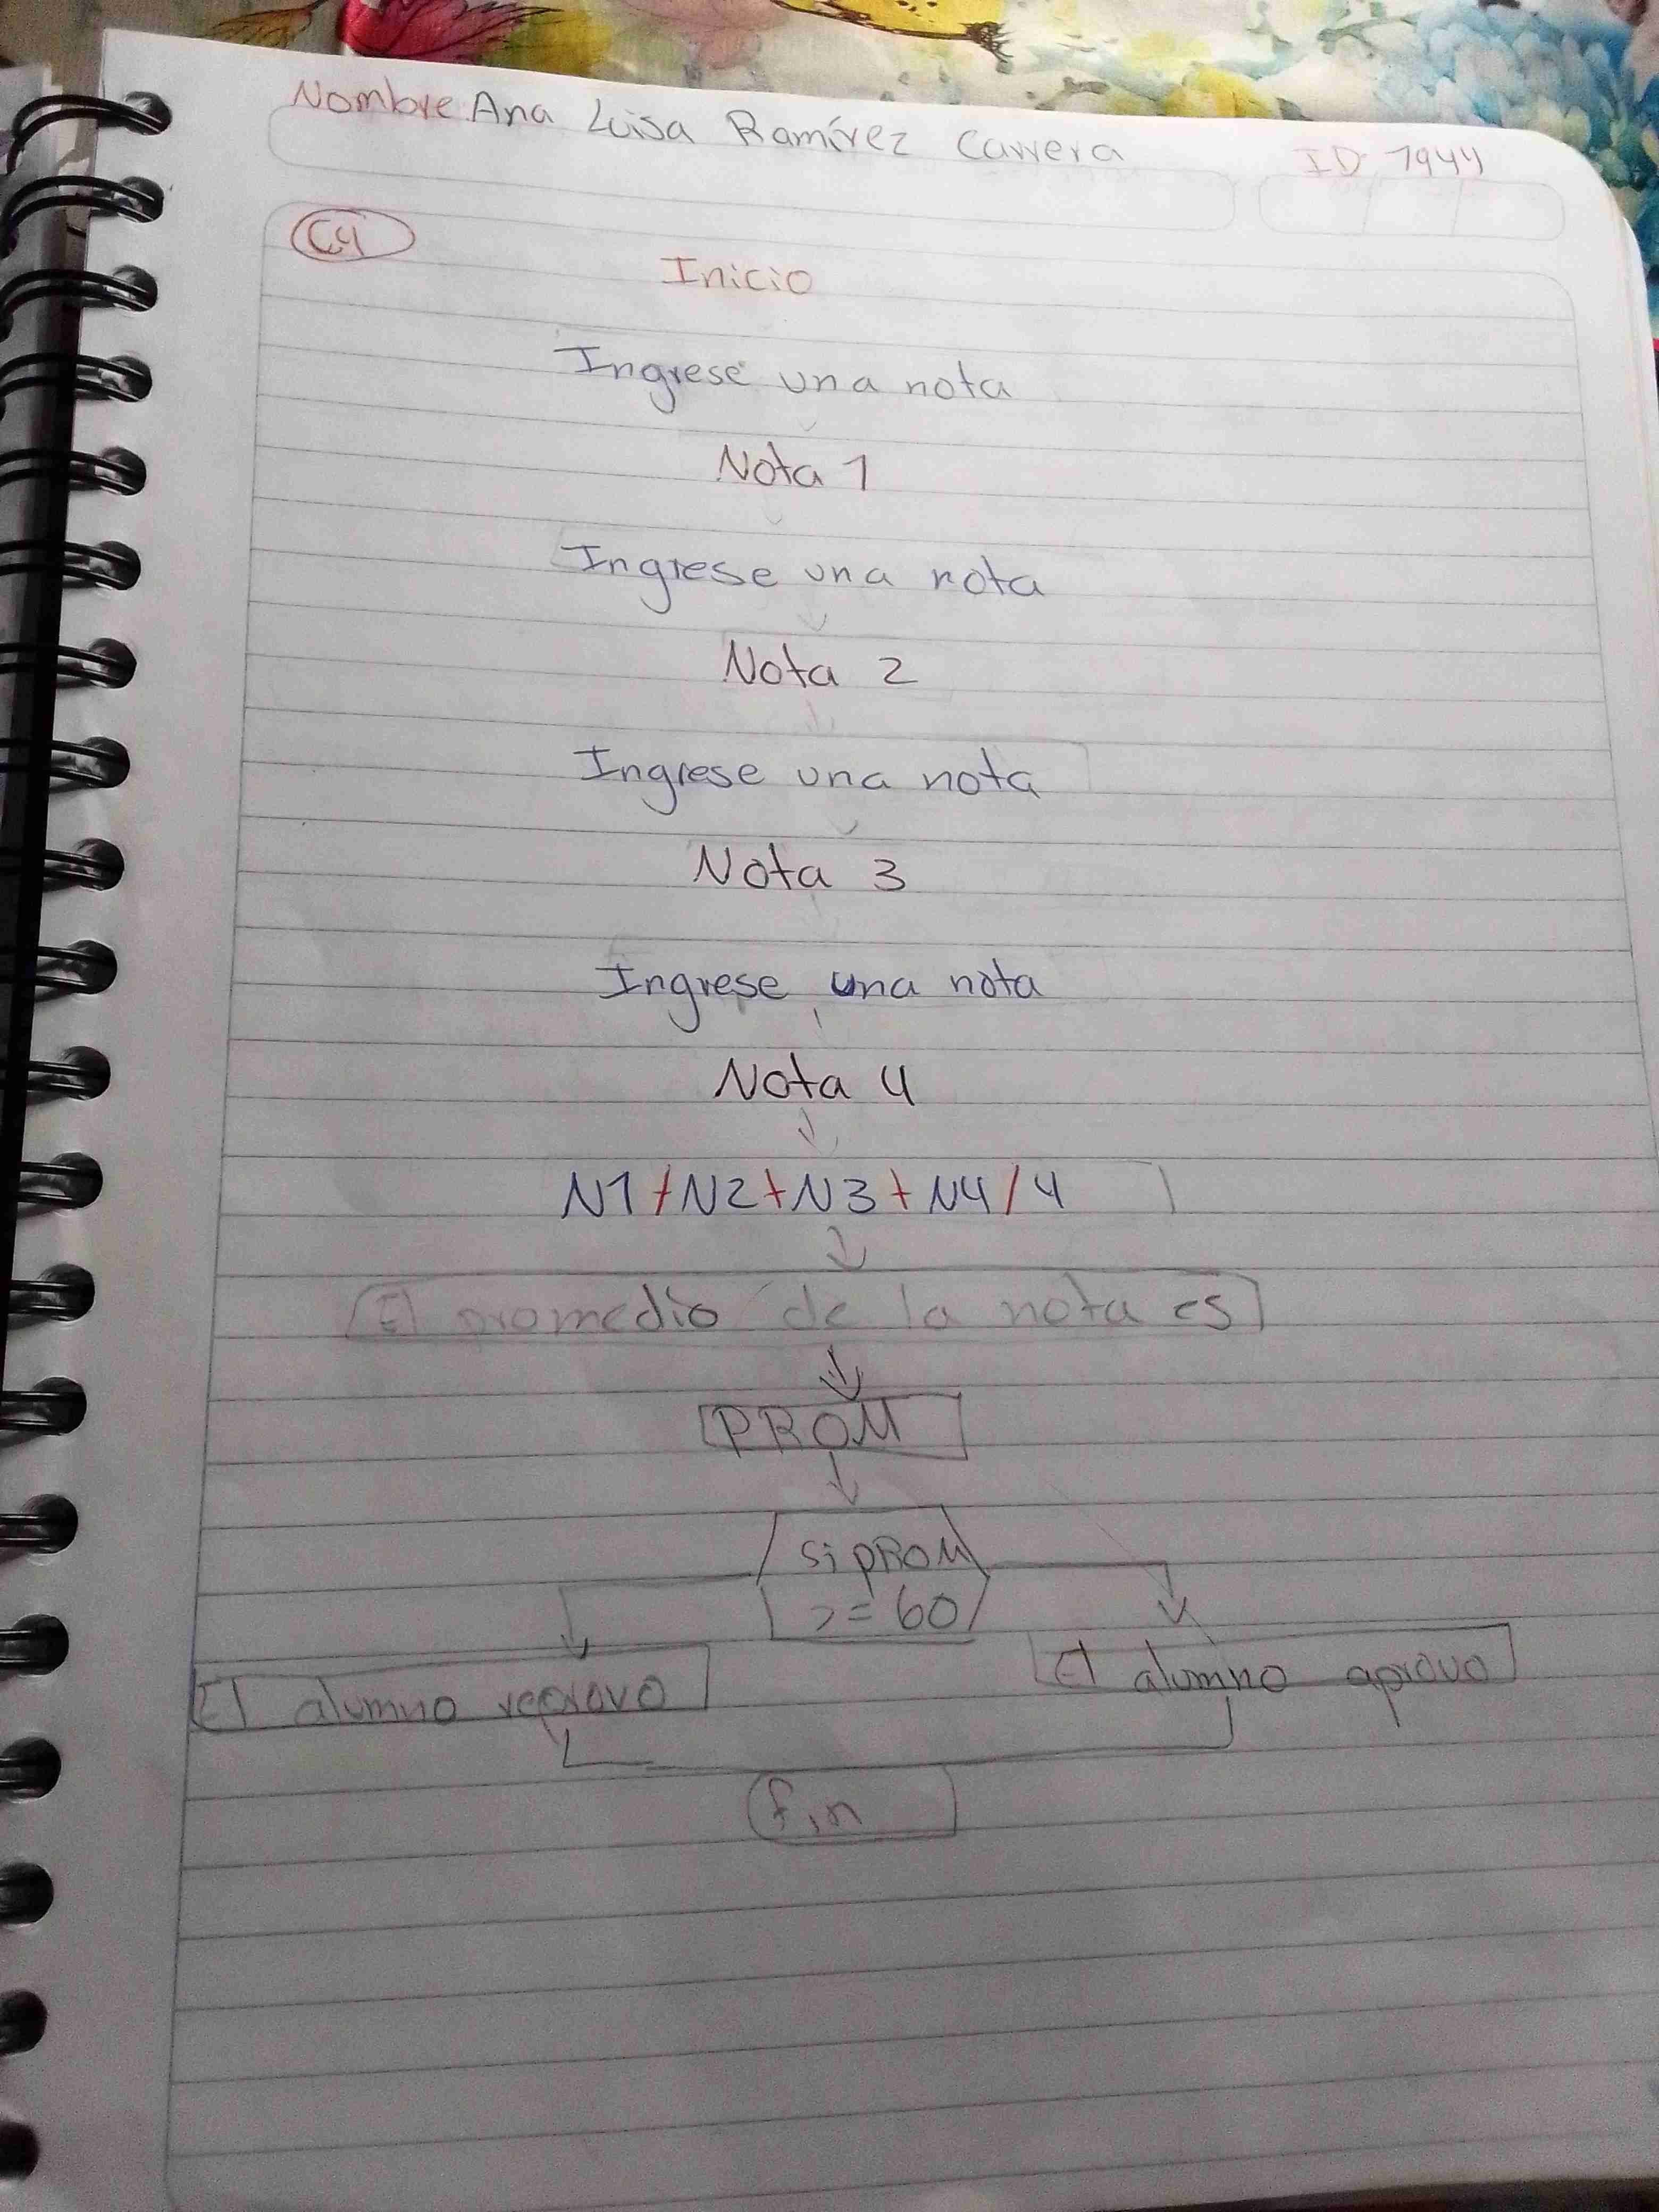 Nombre: Ana Luisa Ramírez Carrera ID: 7944
C4
Inicio
Ingrese una nota
Nota 1
Ingrese una nota
Nota 2
Ingrese una nota
Nota 3
Ingrese una nota
Nota 4
N1+N2+N3+N4/4
El promedio de la nota es
PROM
si PROM
>= 60
El alumno reprovo El alumno aprovo
fin